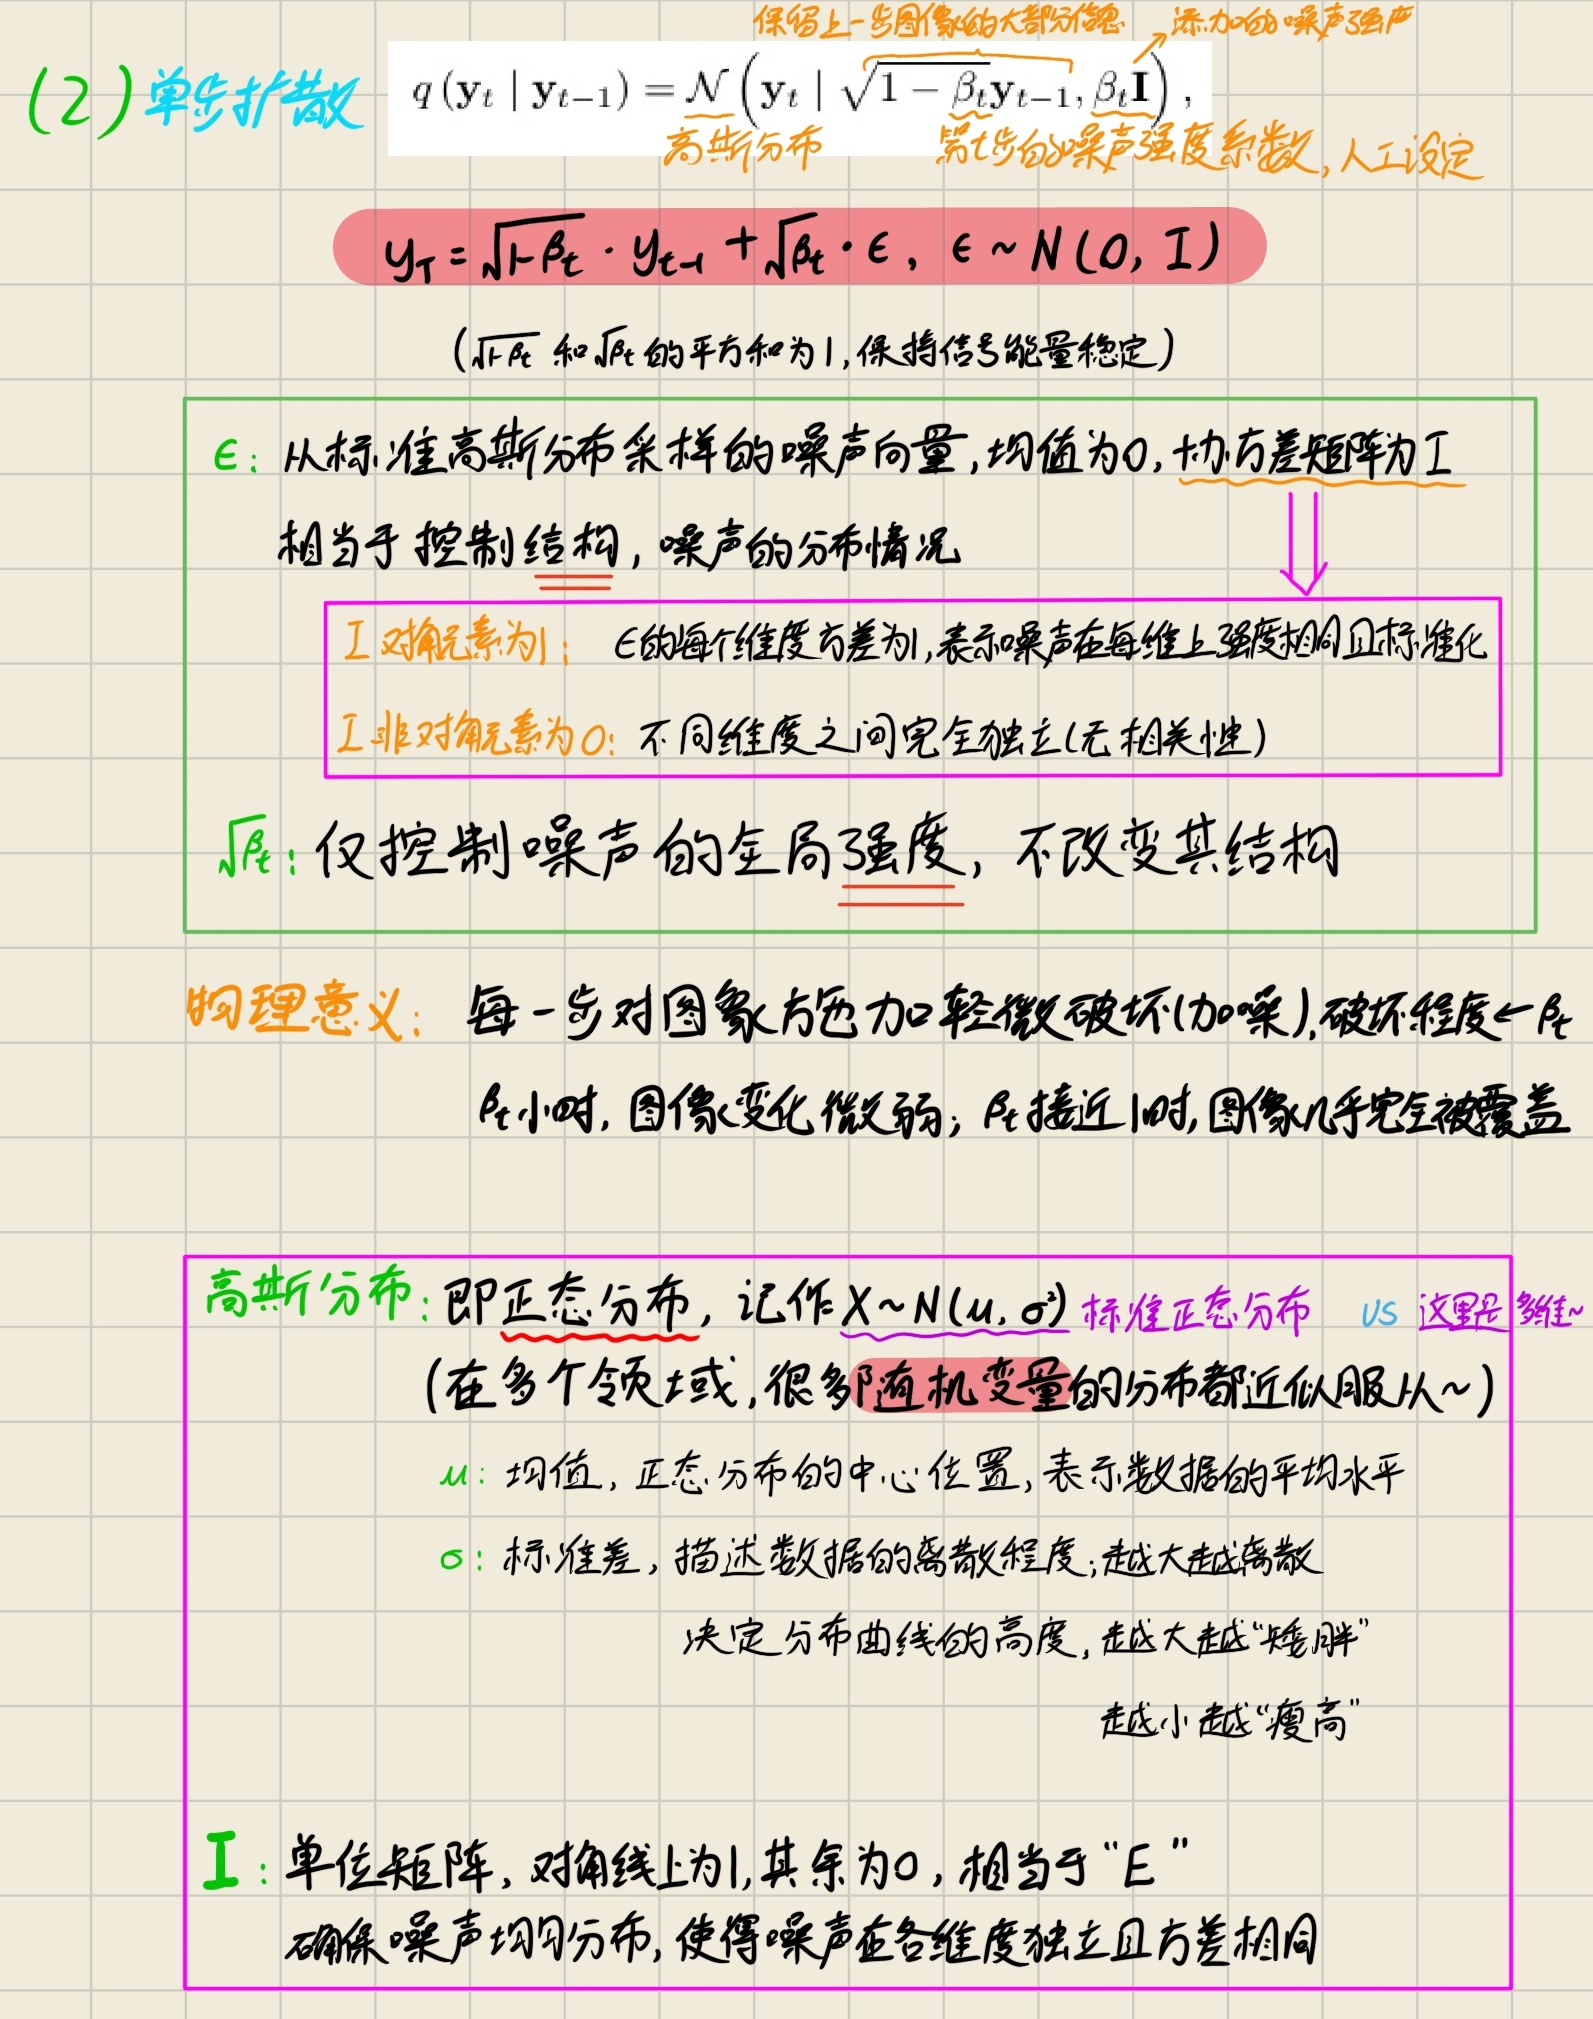 保留上一步图像的大部分信息 添加的噪声强度
(2) 单步扩散 q(y_t | y_{t-1}) = 𝒩(y_t | √(1-β_t) y_{t-1}, β_t I),
高斯分布 第t步的噪声强度系数, 人工设定
y_T = √(1-β_t) · y_{t-1} + √β_t · ϵ, ϵ ~ N(0, I)
(√(1-β_t) 和 √β_t 的平方和为1, 保持信号能量稳定)
ϵ: 从标准高斯分布采样的噪声向量, 均值为0, 协方差矩阵为I
相当于控制结构, 噪声的分布情况
I 对角元素为1: ϵ的每个维度方差为1, 表示噪声在每维上强度相同且标准化
I 非对角元素为0: 不同维度之间完全独立(无相关性)
√β_t: 仅控制噪声的全局强度, 不改变其结构
物理意义: 每一步对图象施加轻微破坏(加噪), 破坏程度←β_t
β_t小时, 图像变化微弱; β_t接近1时, 图像几乎完全被覆盖
高斯分布: 即正态分布, 记作X~N(μ, σ²) 标准正态分布 VS 这里是多维~
(在多个领域, 很多随机变量的分布都近似服从~)
μ: 均值, 正态分布的中心位置, 表示数据的平均水平
σ: 标准差, 描述数据的离散程度; 越大越离散
决定分布曲线的高度, 越大越“矮胖”
越小越“瘦高”
I: 单位矩阵, 对角线上为1, 其余为0, 相当于“E”
确保噪声均匀分布, 使得噪声在各维度独立且方差相同